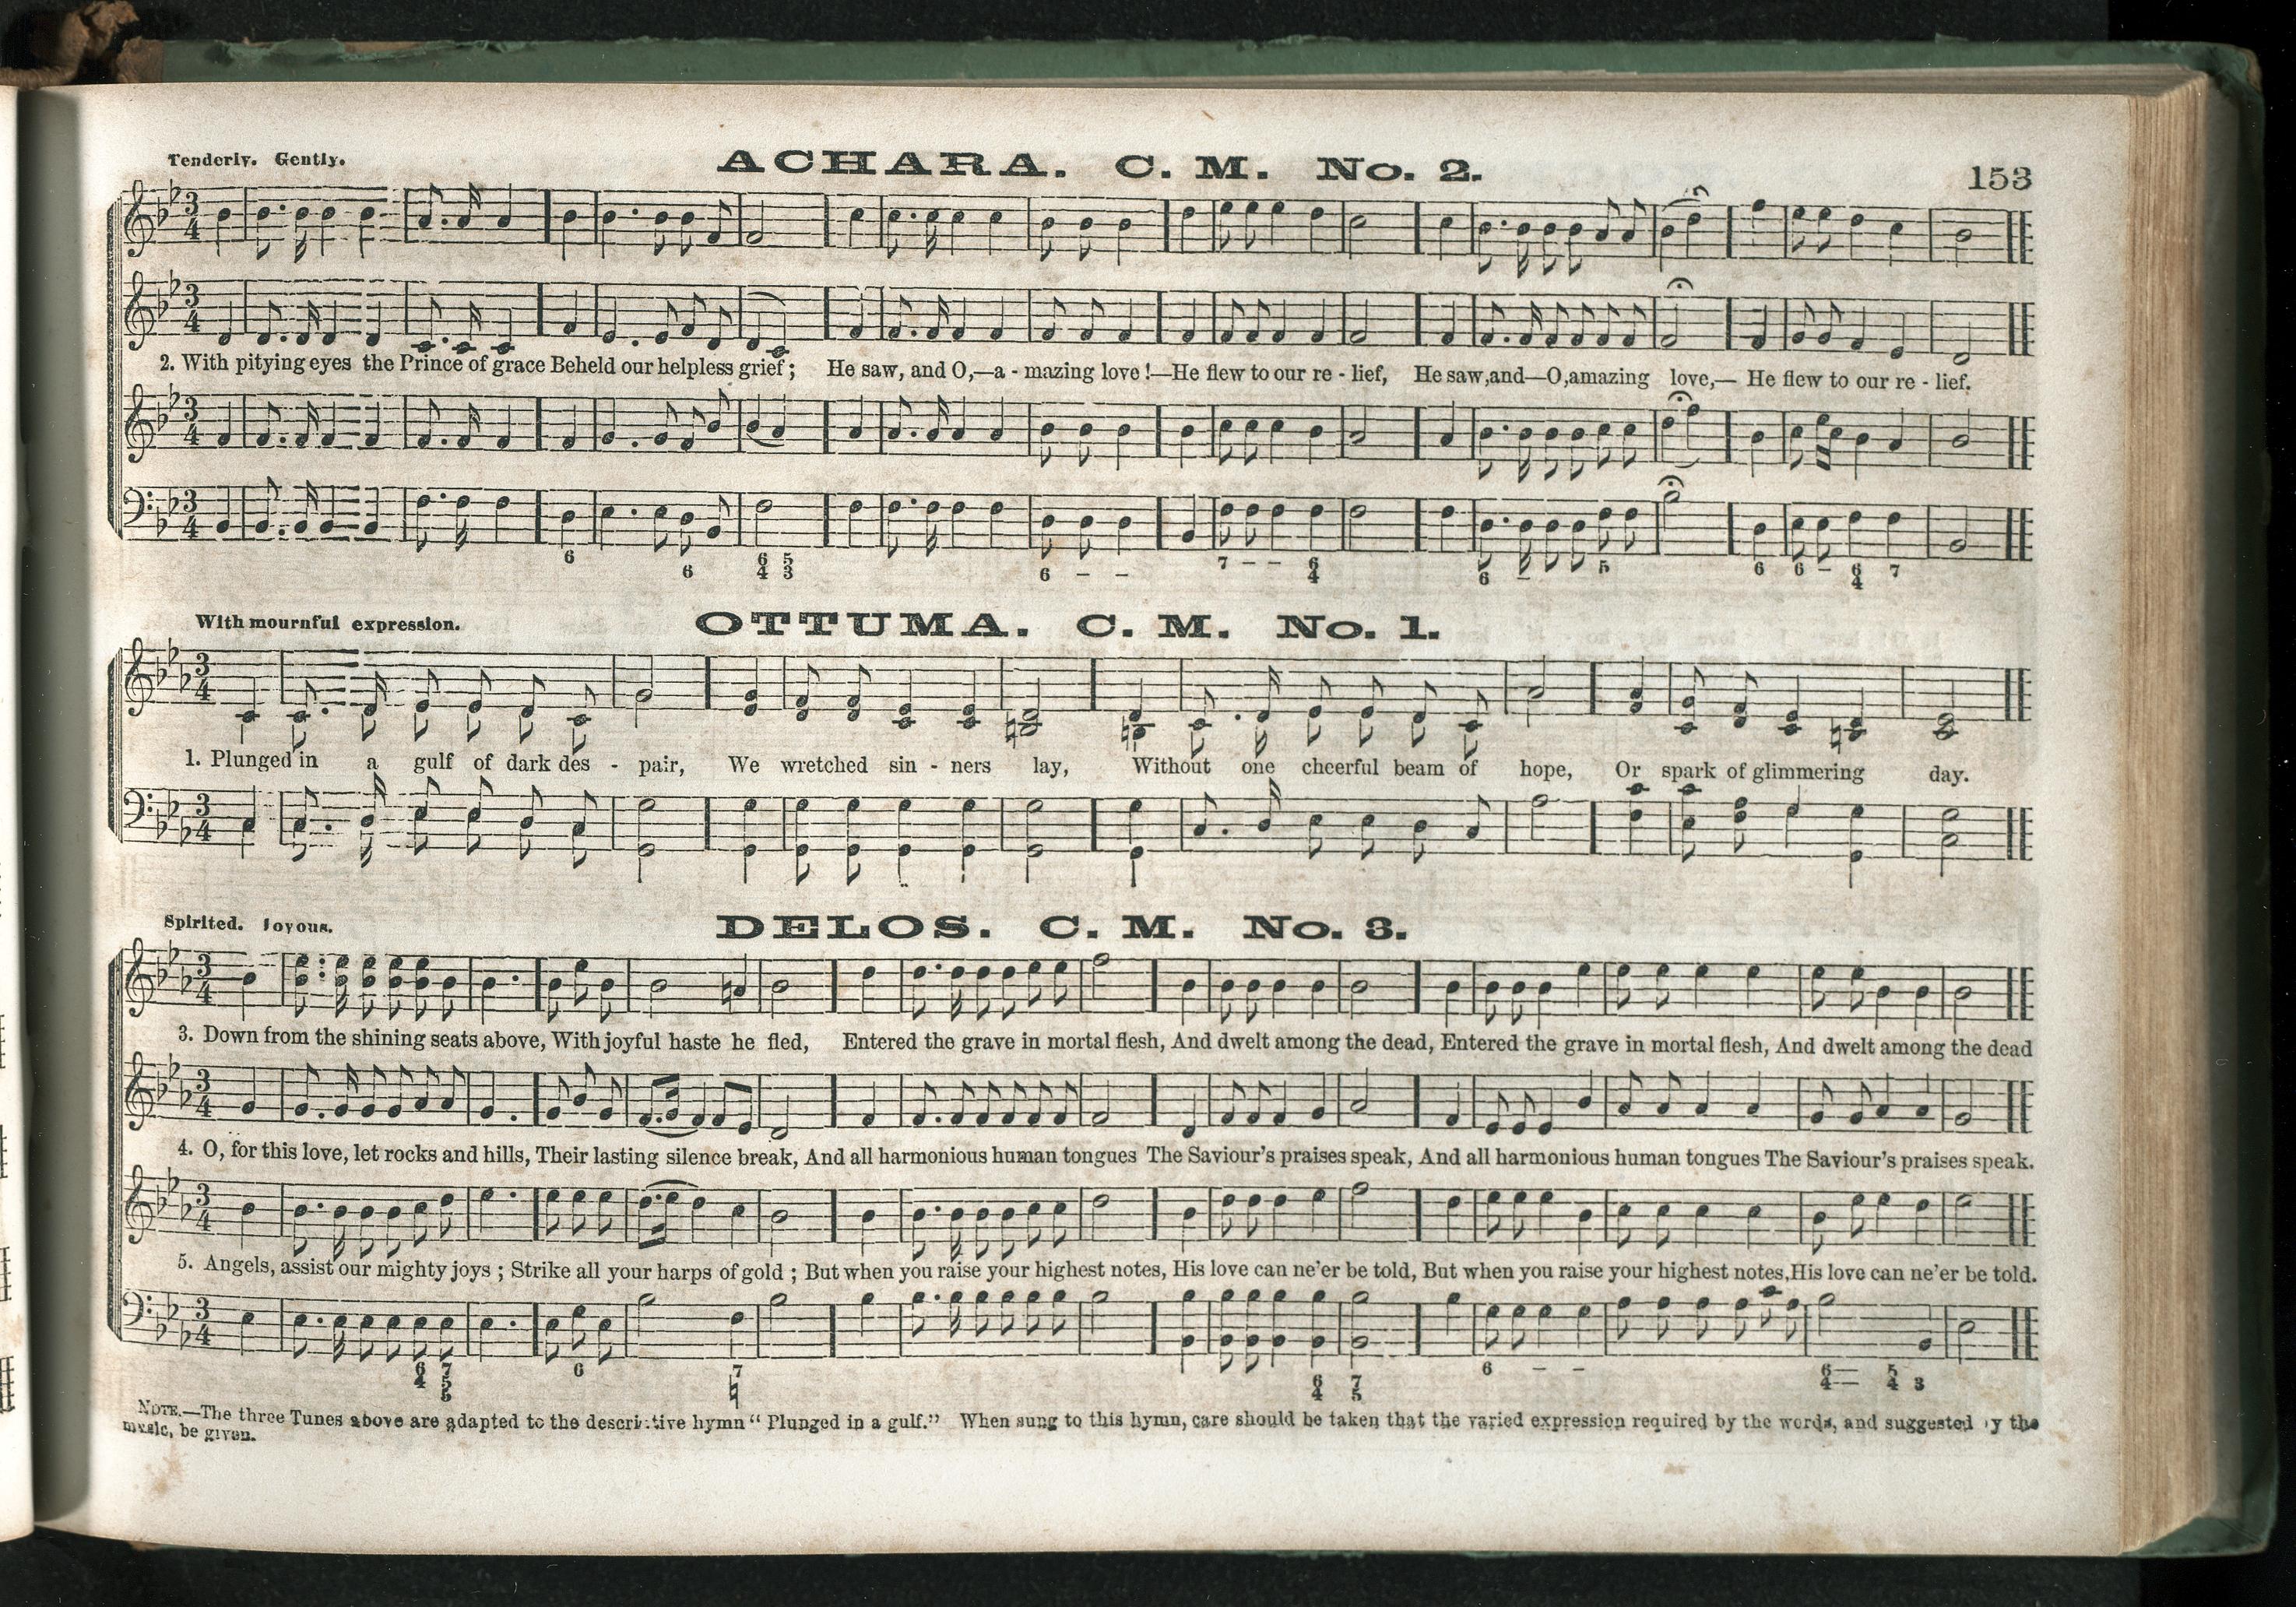 Tenderly. Gently.
ACHARA. C. M. No. 2.
153
2. With pitying eyes the Prince of grace Beheld our helpless grief; He saw, and O,—a - mazing love!—He flew to our re - lief, He saw, and—O, amazing love,— He flew to our re - lief.
6 6 6 5 6 – – 7 – – 6 6 – 5 6 6 – 6 7
4 3 4 4
With mournful expression.
OTTUMA. C. M. No. 1.
1. Plunged in a gulf of dark des - pair, We wretched sin - ners lay, Without one cheerful beam of hope, Or spark of glimmering day.
Spirited. Joyous.
DELOS. C. M. No. 3.
3. Down from the shining seats above, With joyful haste he fled, Entered the grave in mortal flesh, And dwelt among the dead, Entered the grave in mortal flesh, And dwelt among the dead
4. O, for this love, let rocks and hills, Their lasting silence break, And all harmonious human tongues The Saviour's praises speak, And all harmonious human tongues The Saviour's praises speak.
5. Angels, assist our mighty joys; Strike all your harps of gold; But when you raise your highest notes, His love can ne'er be told, But when you raise your highest notes, His love can ne'er be told.
6 7 6 7 6 7 6 – – 6— 5
4 5 4 5 4— 4 3
NOTE.—The three Tunes above are adapted to the descriptive hymn "Plunged in a gulf." When sung to this hymn, care should be taken that the varied expression required by the words, and suggested by the
music, be given.